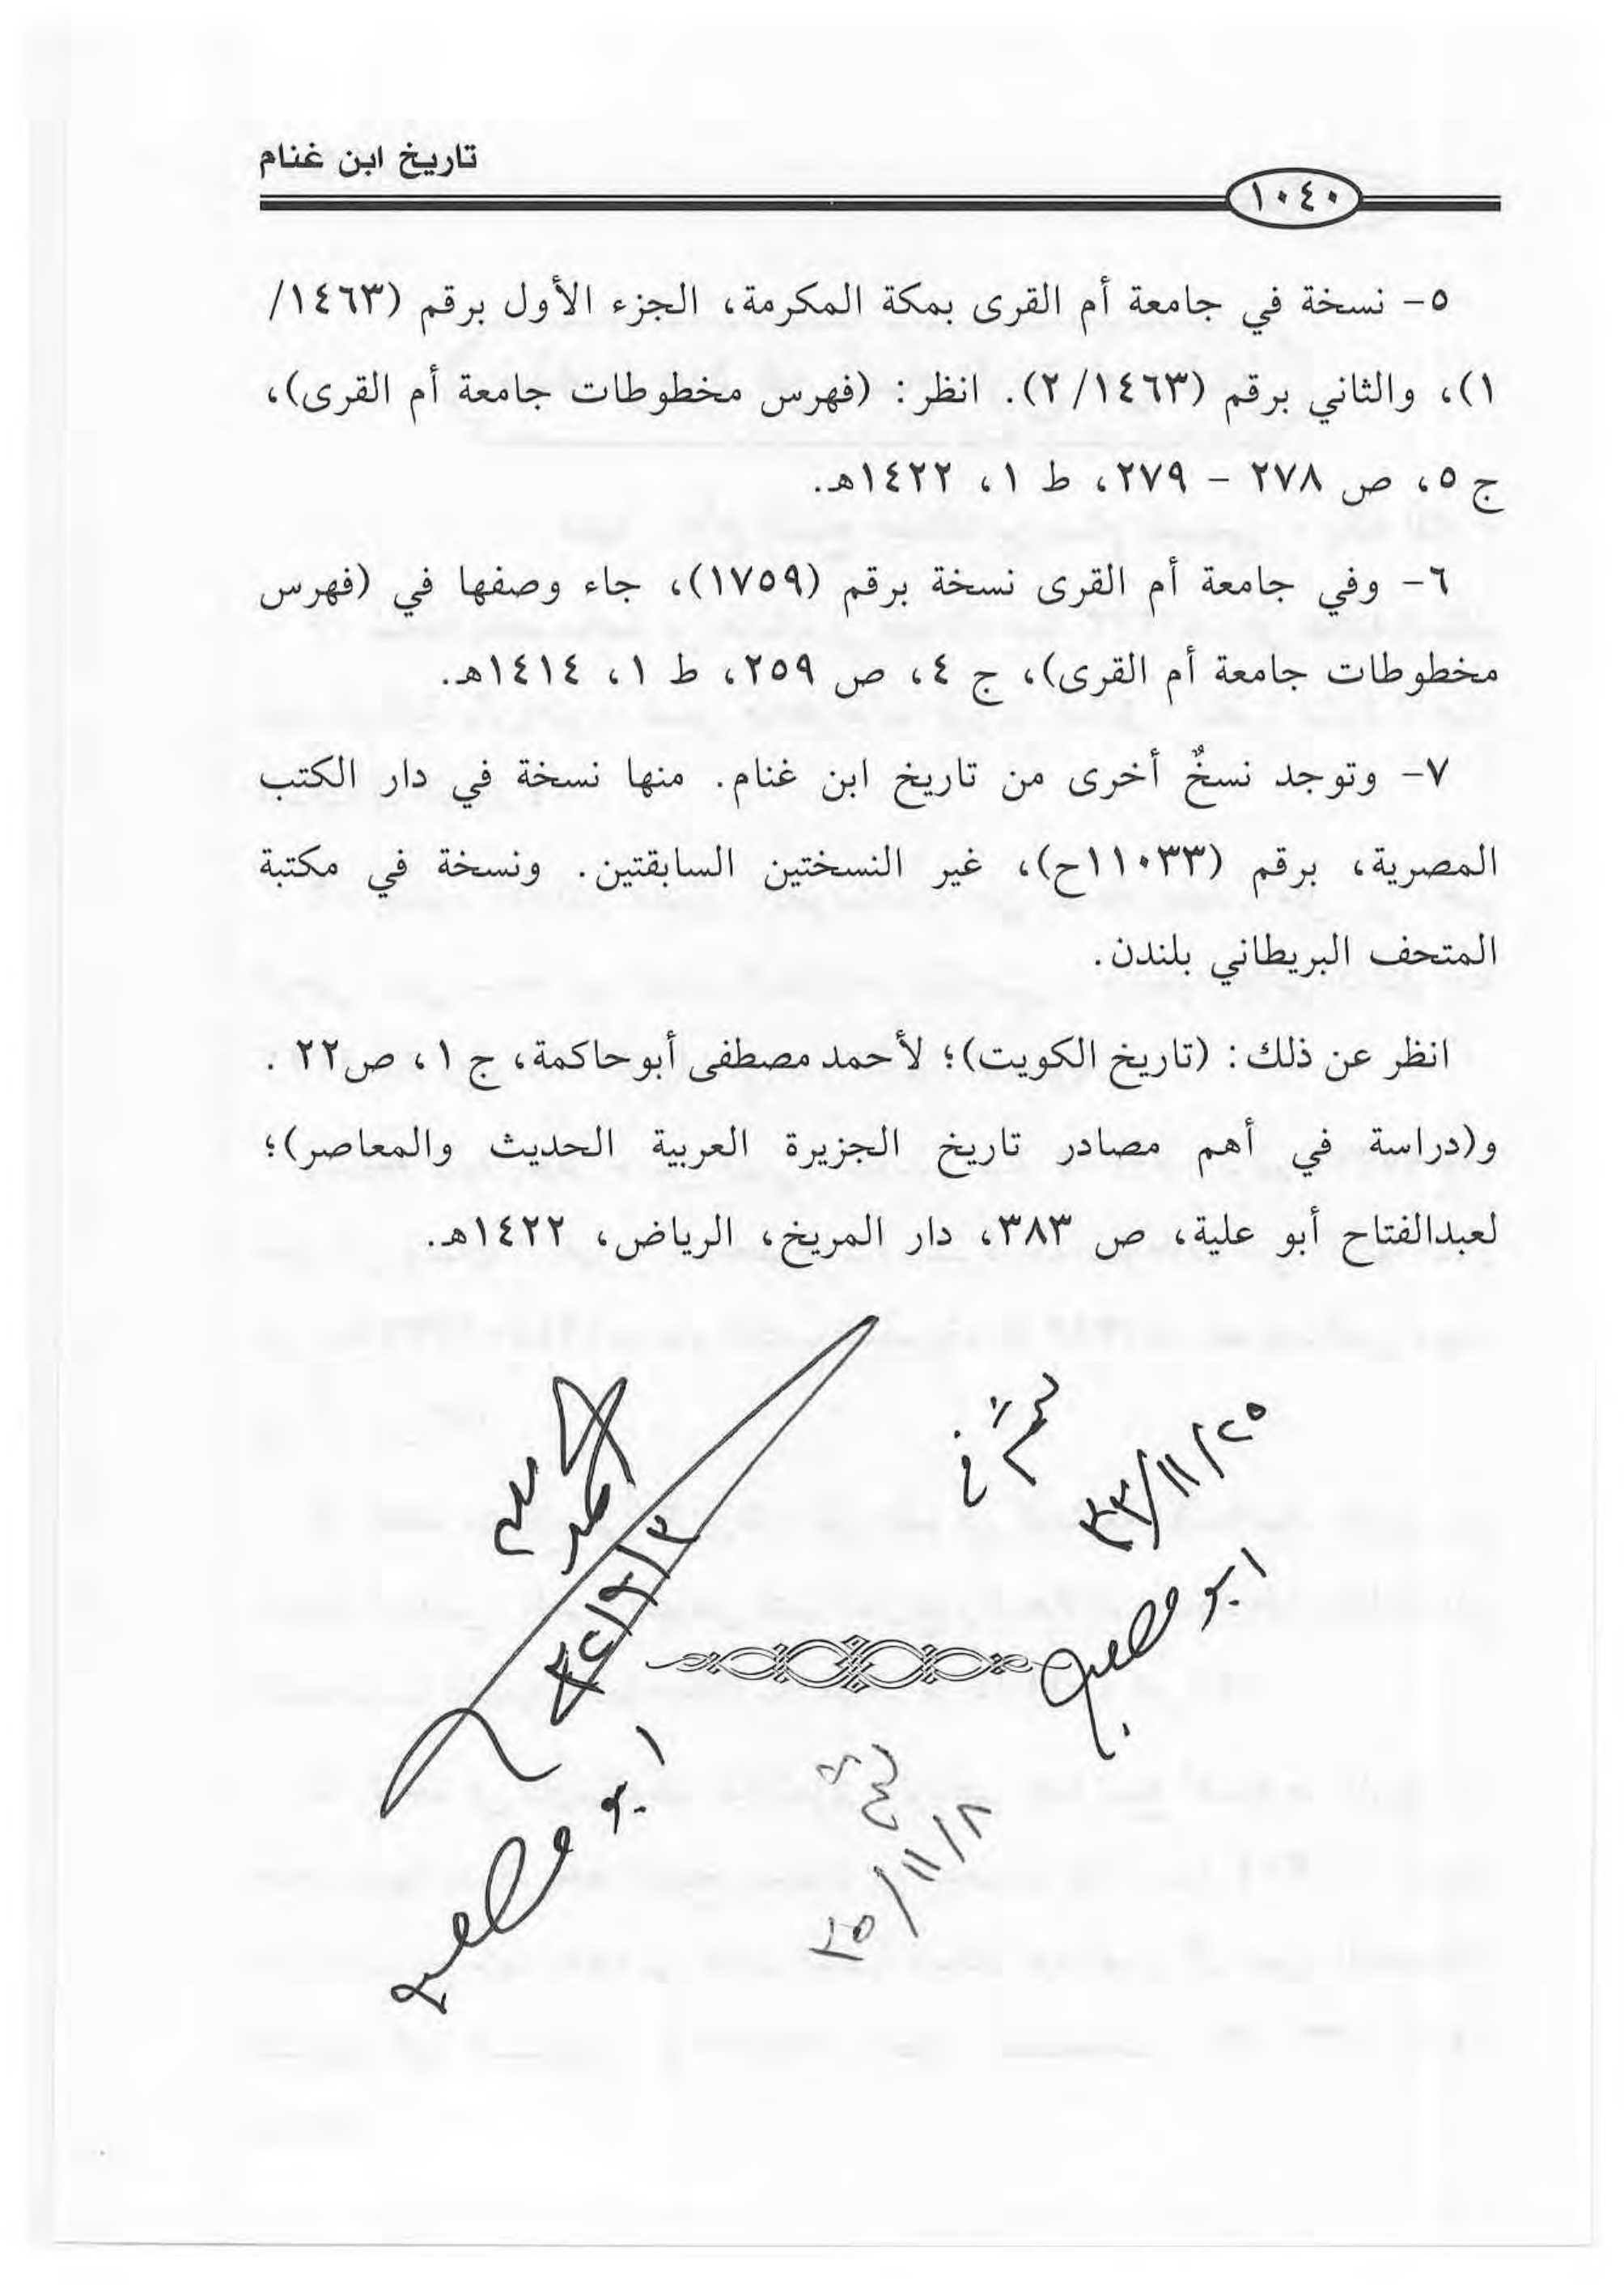 تاريخ ابن غنام
١٠٤٠
٥- نسخة في جامعة أم القرى بمكة المكرمة، الجزء الأول برقم (١٤٦٣/
١)، والثاني برقم (١٤٦٣/ ٢). انظر: (فهرس مخطوطات جامعة أم القرى)،
ج ٥، ص ٢٧٨ - ٢٧٩، ط ١، ١٤٢٢هـ.
٦- وفي جامعة أم القرى نسخة برقم (١٧٥٩)، جاء وصفها في (فهرس
مخطوطات جامعة أم القرى)، ج ٤، ص ٢٥٩، ط ١، ١٤١٤هـ.
٧- وتوجد نسخٌ أخرى من تاريخ ابن غنام. منها نسخة في دار الكتب
المصرية، برقم (١١٠٣٣ح)، غير النسختين السابقتين. ونسخة في مكتبة
المتحف البريطاني بلندن.
انظر عن ذلك: (تاريخ الكويت)؛ لأحمد مصطفى أبوحاكمة، ج ١، ص٢٢ .
و(دراسة في أهم مصادر تاريخ الجزيرة العربية الحديث والمعاصر)؛
لعبدالفتاح أبو علية، ص ٣٨٣، دار المريخ، الرياض، ١٤٢٢هـ.
٣٣/١١/٢٥
٣٥/١١/٨